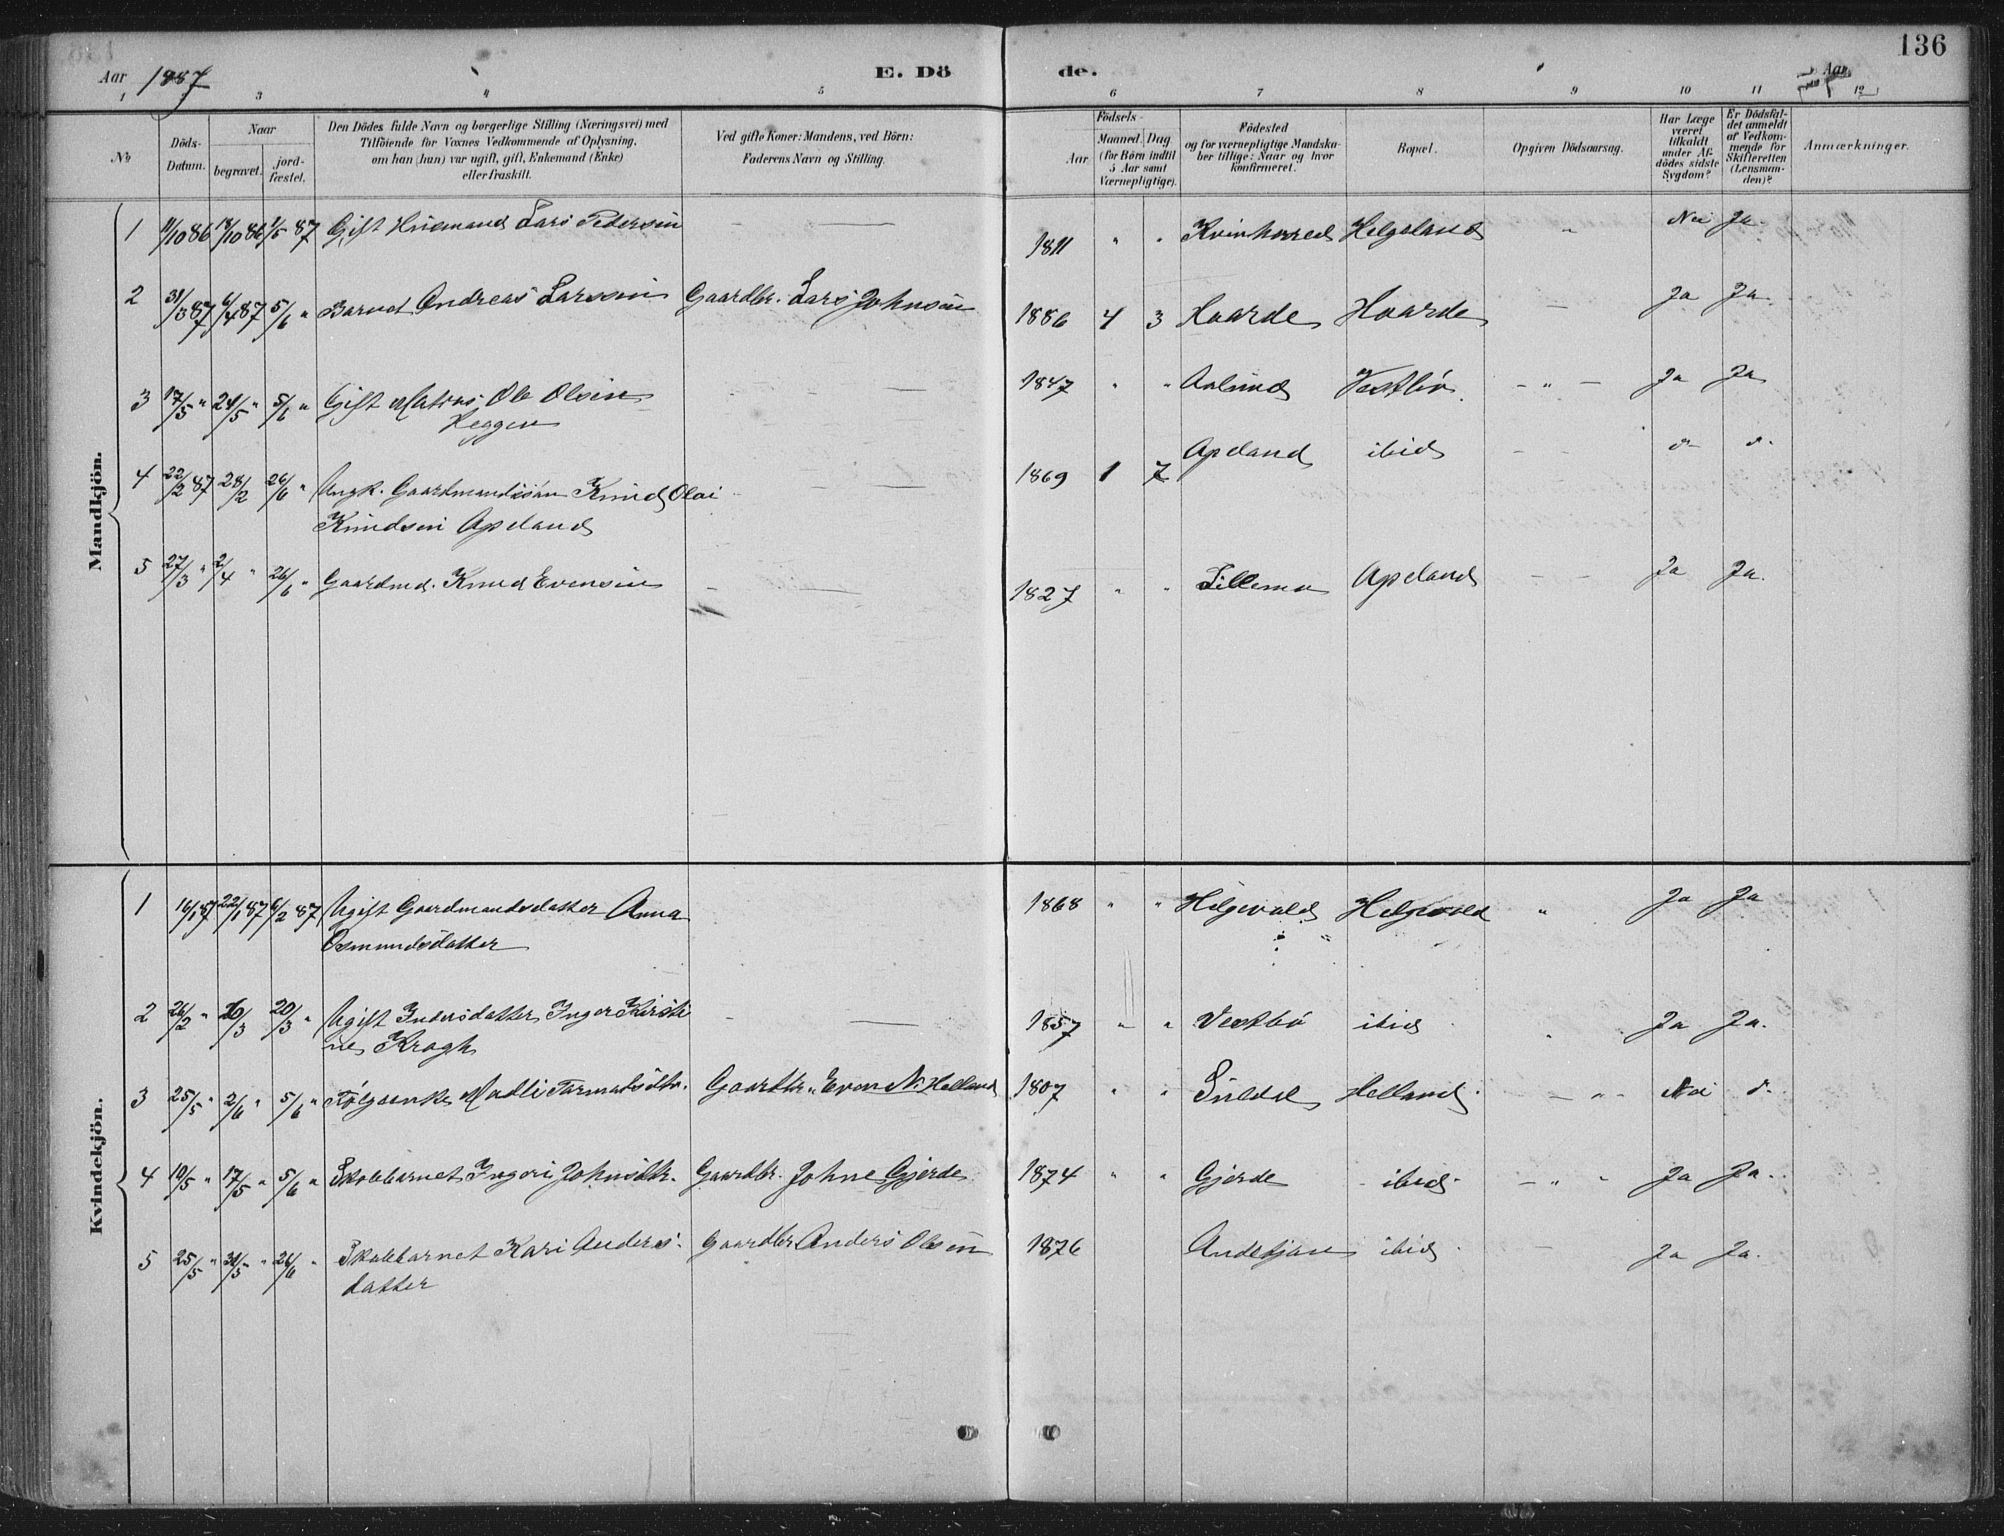 136
Aar 1887 E. Dö de. Aar
1 2 3 4 5 6 7 8 9 10 11 12
No Döds-Datum. Naar begravet. jord-fæstet. Den Dödes fulde Navn og borgerlige Stilling (Næringsvei) med Tilföiende for Voxnes Vedkommende af Oplysning, om han (hun) var ugift, gift, Enkemand (Enke) eller fraskilt. Ved gifte Koner: Mandens, ved Börn: Faderens Navn og Stilling. Aar. Födsels- Maaned. Dag (for Börn indtil 5 Aar samt Værnepligtige). Födested og for værnepligtige Mandskaber tillige: Naar og hvor konfirmeret. Bopæl. Opgiven Dödsaarsag. Har Læge været tilkaldt under Afdödes sidste Sygdom? Er Dödsfaldet anmeldt af Vedkommende for Skifteretten (Lensmanden)? Anmærkninger.
Mandkjön.
1 11/10 86 18/10 86 1/5 87 Gift Husmand Lars Pedersen — — 1811 " " Kvinherred Helgeland " Nei Ja.
2 31/3 87 6/4 87 5/6 " Barnet Andreas Larssen Gaardbr. Lars Johnsen 1886 4 3 Hoarde Hoarde — Ja Ja
3 17/5 " 24/5 " 5/6 " Gift Matros Ole Olsen — — 1847 " " Aalund Vestbö. — " — Ja Ja
Heggen
4 22/2 87 28/2 26/6 " Ungk. Gaardmandssön Knud Olai — — 1869 1 7 Apeland ibid — — d- d-
Knudsen Apeland
5 27/3 " 2/4 " 26/6 " Gaardmd. Knud Evensen — — 1827 " " Lillemo Apeland — — Ja Ja.
Kvindekjön.
1 16/1 87 22/1 87 6/2 87 Ugift Gaardmandsdatter Anna 1868 " " Helgevold Helgevold " Ja Ja
Osmundsdatter
2 26/2 " /3 20/3 " Ugift Inger Kirsti — — 1857 " " Vestbö ibid " Ja Ja.
ne Kragh
3 25/5 " 2/6 " 5/6 " Madli Tormodsdtr. Gaardbr. Even N. Helland 1807 " " Suldal Helland. — " - Nei d-
4 10/5 " 17/5 " 5/6 " Skolebarnet Ingeri Johnsdtr. Gaardbr. Johne Gjerde 1874 " " Gjerde - ibid - — " - Ja Ja.
5 25/5 " 31/5 " 26/6 " Skolebarnet Kari Anders- Gaardbr Anders Olsen 1876 ibid. — Ja Ja.
datter